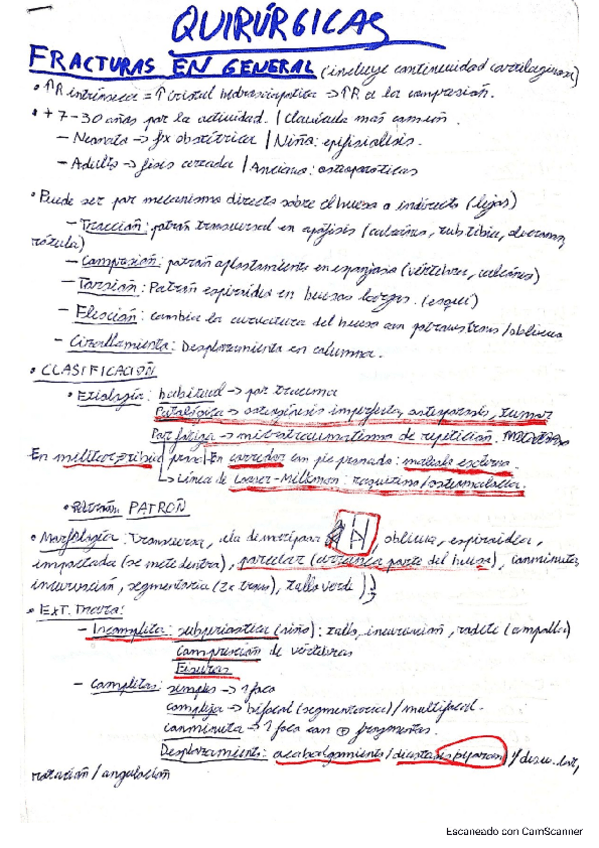 QUIRÚRGICAS
FRACTURAS EN GENERAL (incluye continuidad cartilaginosa)
• ↑R intrínseca = ↑ cristal hidroxiapatita → ↑R a la compresión.
• + 7-30 años por la actividad. | Clavícula más común.
- Neonato → fx obstétrica | Niño: epifisiolisis.
- Adulto → física cerrada | Anciano: osteoporóticas
• Puede ser por mecanismo directo sobre el hueso o indirecto (lejos)
- Tracción: patrón transversal en apófisis (calcáneo, tub tibia, olecranon,
rótula)
- Compresión: patrón aplastamiento en esponjoso (vértebra, calcáneo)
- Torsión: Patrón espiroideo en huesos largos. (esquí)
- Flexión: cambia la curvatura del hueso con /oblicua
- Cizallamiento: Desplazamiento en columna.
• CLASIFICACIÓN
• Etiología: habitual → por trauma
Patológica → osteogénesis imperfecta, osteoporosis, tumor
Por fatiga → microtraumatismo de repetición.
En militar: tibia prox | En corredor con pie pronado: maleolo externo.
↳ Línea de Looser-Milkman: raquitismo/osteomalacia.
• PATRÓN
• Morfología: transversa, ala de mariposa, oblicua, espiroidea,
impactada (se mete dentro), parcelar (arranca parte del hueso), conminuta,
incurvación, segmentaria (2x trans), tallo verde
• EXT. TRAYO:
- Incompleta: subperióstica (niño): tallo, incurvación, rodete (compallo)
Compresión de vértebras
Fisuras
- Completas: simples → 1 foco
compleja → bifocal (segmentaria) / multifocal.
conminuta → 1 foco con ⊕ fragmentos.
Desplazamiento: acabalgamiento / diastasis / desv. lat,
rotación / angulación
Escaneado con CamScanner